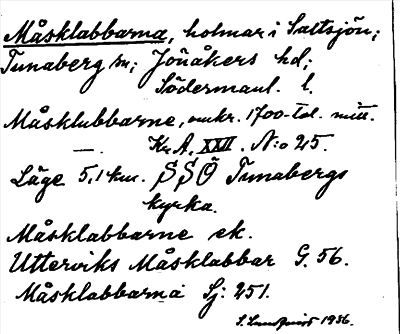 Måsklabbarna, holmar i Saltsjön;
Tunaberg sn; Jönåkers hd;
Södermanl. l.
Måsklubbarne, omkr. 1700-tal. mitt.
— . Kr. A. XXII. N:o 25.
Läge 5,1 km. SSÖ Tunabergs
kyrka.
Måsklabbarne ek.
Utterviks Måsklabbar G. 56.
Måsklabbarna Sj: 251.
S. Landqvist 1936.